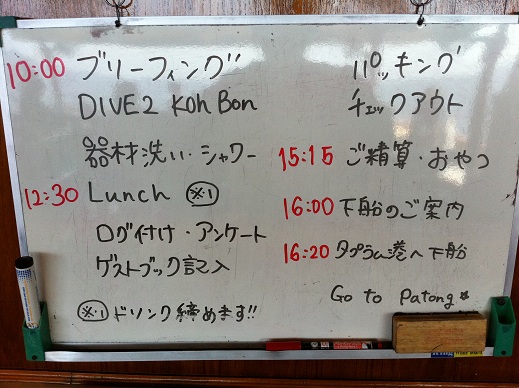 10:00 ブリーフィング
DIVE2 Koh Bon
器材洗い・シャワー
12:30 Lunch ※1
ログ付け・アンケート
ゲストブック記入
※1 ドリンク締めます!!
パッキング
チェックアウト
15:15 ご精算・おやつ
16:00 下船のご案内
16:20 タプラム港へ下船
Go to Patong☆